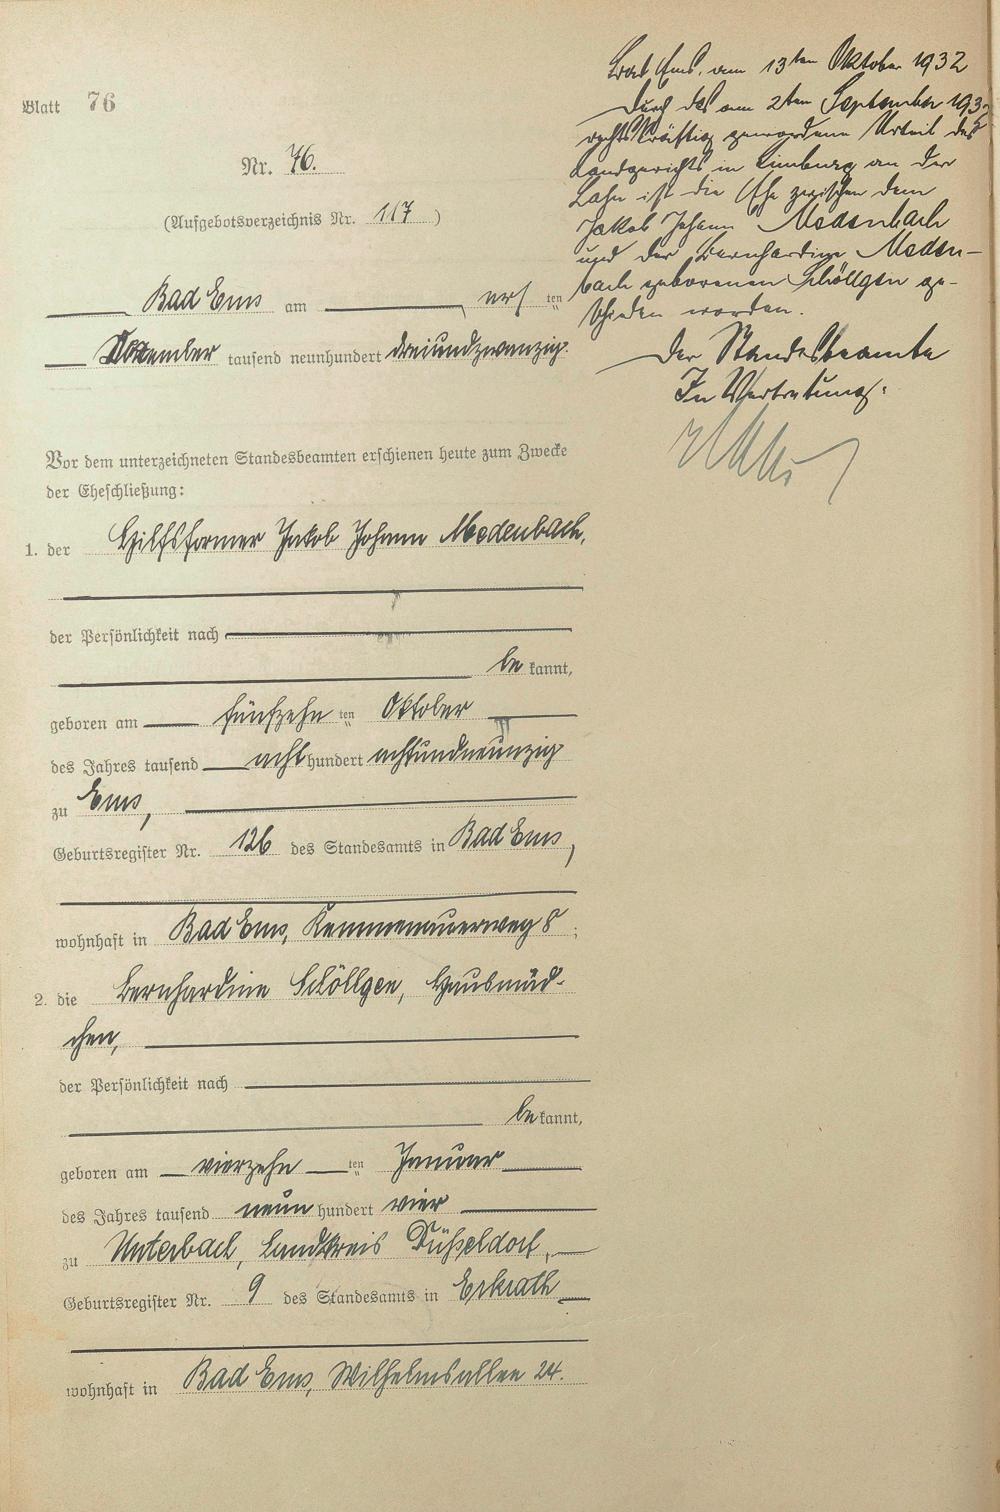 Blatt 76
Nr. 76.
(Aufgebotsverzeichnis Nr. 117)
Bad Ems am ersten
Dezember tausend neunhundert dreiundzwanzig.
Vor dem unterzeichneten Standesbeamten erschienen heute zum Zwecke
der Eheschließung:
1. der Hilfsformer Jakob Johann Medenbach,
der Persönlichkeit nach
bekannt,
geboren am fünfzehnten Oktober
des Jahres tausend achthundert achtundneunzig
zu Ems,
Geburtsregister Nr. 126 des Standesamts in Bad Ems,
wohnhaft in Bad Ems, Kemmenauerweg 8;
2. die Bernhardine Schöllgen, Hausmäd-
chen,
der Persönlichkeit nach
bekannt,
geboren am vierzehnten Januar
des Jahres tausend neunhundert vier
zu Unterbach, Landkreis Düsseldorf,
Geburtsregister Nr. 9 des Standesamts in Erkrath
wohnhaft in Bad Ems, Wilhelmsallee 24.
Bad Ems, am 13ten Oktober 1932
Durch das am 2ten September 1932
rechtskräftig gewordene Urteil des
Landgerichts in Limburg an der
Lahn ist die Ehe zwischen dem
Jakob Johann Medenbach
und der Bernhardine Meden-
bach geborenen Schöllgen ge-
schieden worden.
Der Standesbeamte
In Vertretung: